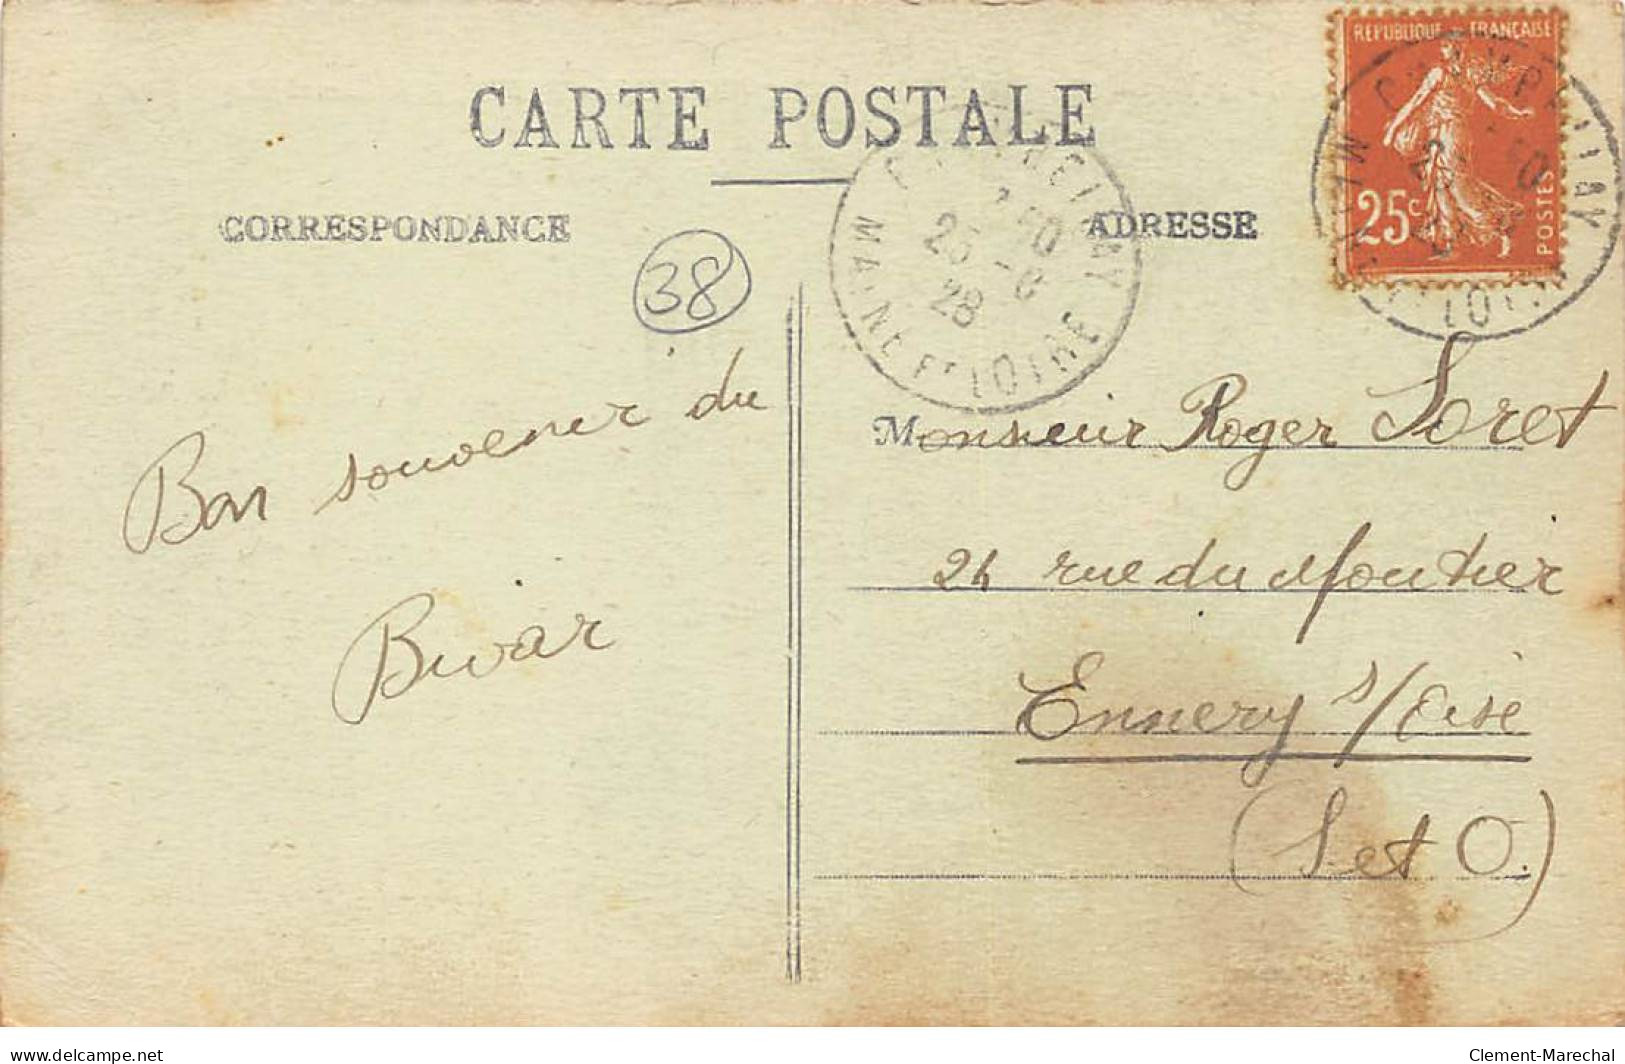 CARTE POSTALE
CORRESPONDANCE
ADRESSE
REPUBLIQUE FRANÇAISE
25c
POSTES
MAINE ET LOIRE
28
38
Bon souvenir du
Bivar
Monsieur Roger Loret
24 rue du Moutier
Ennery s/Oise
(S et O.)
www.delcampe.net
Clement-Marechal